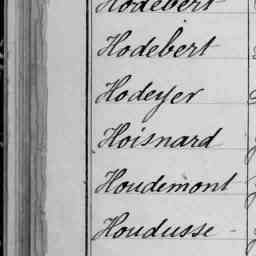 Hodebert
Hodebert
Hodeyer
Hoisnard
Houdemont
Houdusse